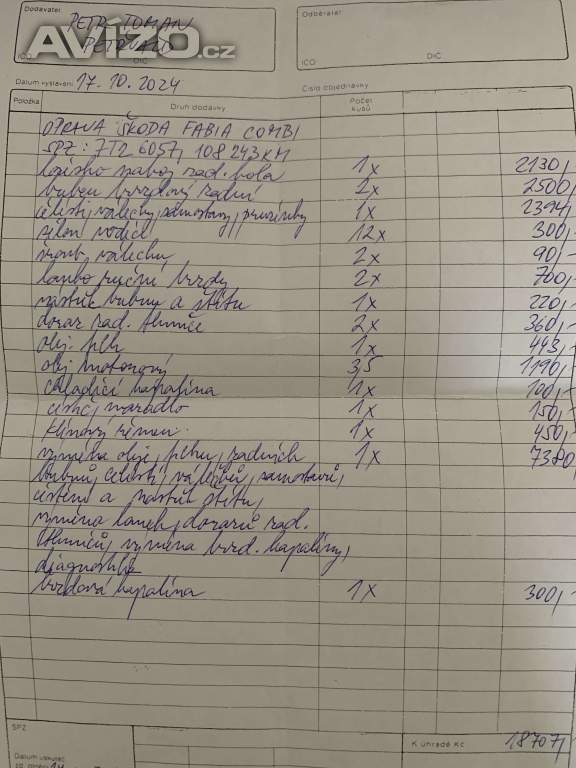 Dodavatel:
Odběratel:
PETR TOMAN
PETŘVALD
AVÍZO.cz
IČO DIČ
IČO DIČ
Datum vystavení 17. 10. 2024 Číslo objednávky
Položka Druh dodávky Počet kusů
OPRAVA ŠKODA FABIA COMBI
SPZ: 7T2 6057, 108 243 KM
ložisko náboj zad. kola 1x 2130,-
buben brzdový zadní 2x 2500,-
čelisti, válečky, samostavy, pružinky 1x 2394,-
12x 300,-
šroub. válečku 2x 90,-
lanko ruční brzdy 2x 700,-
nástřik bubny a štítu 1x 220,-
doraz zad. tlumiče 2x 360,-
olej. filtr 1x 443,-
olej motorový 3,5 1190,-
chladící kapalina 1x 100,-
čistič, mazadlo 1x 150,-
klínový řemen 1x 450,-
výměna oleje, filtru, zadních 1x 7380,-
bubnů, čelistí, válečků, samostavů,
čištění a nástřik štítu,
výměna lanek, dorazů zad.
tlumičů, výměna brzd. kapaliny,
diagnostika
brzdová kapalina 1x 300,-
SPZ
K úhradě Kč 18707,-
Datum uskuteč.
zd. plnění